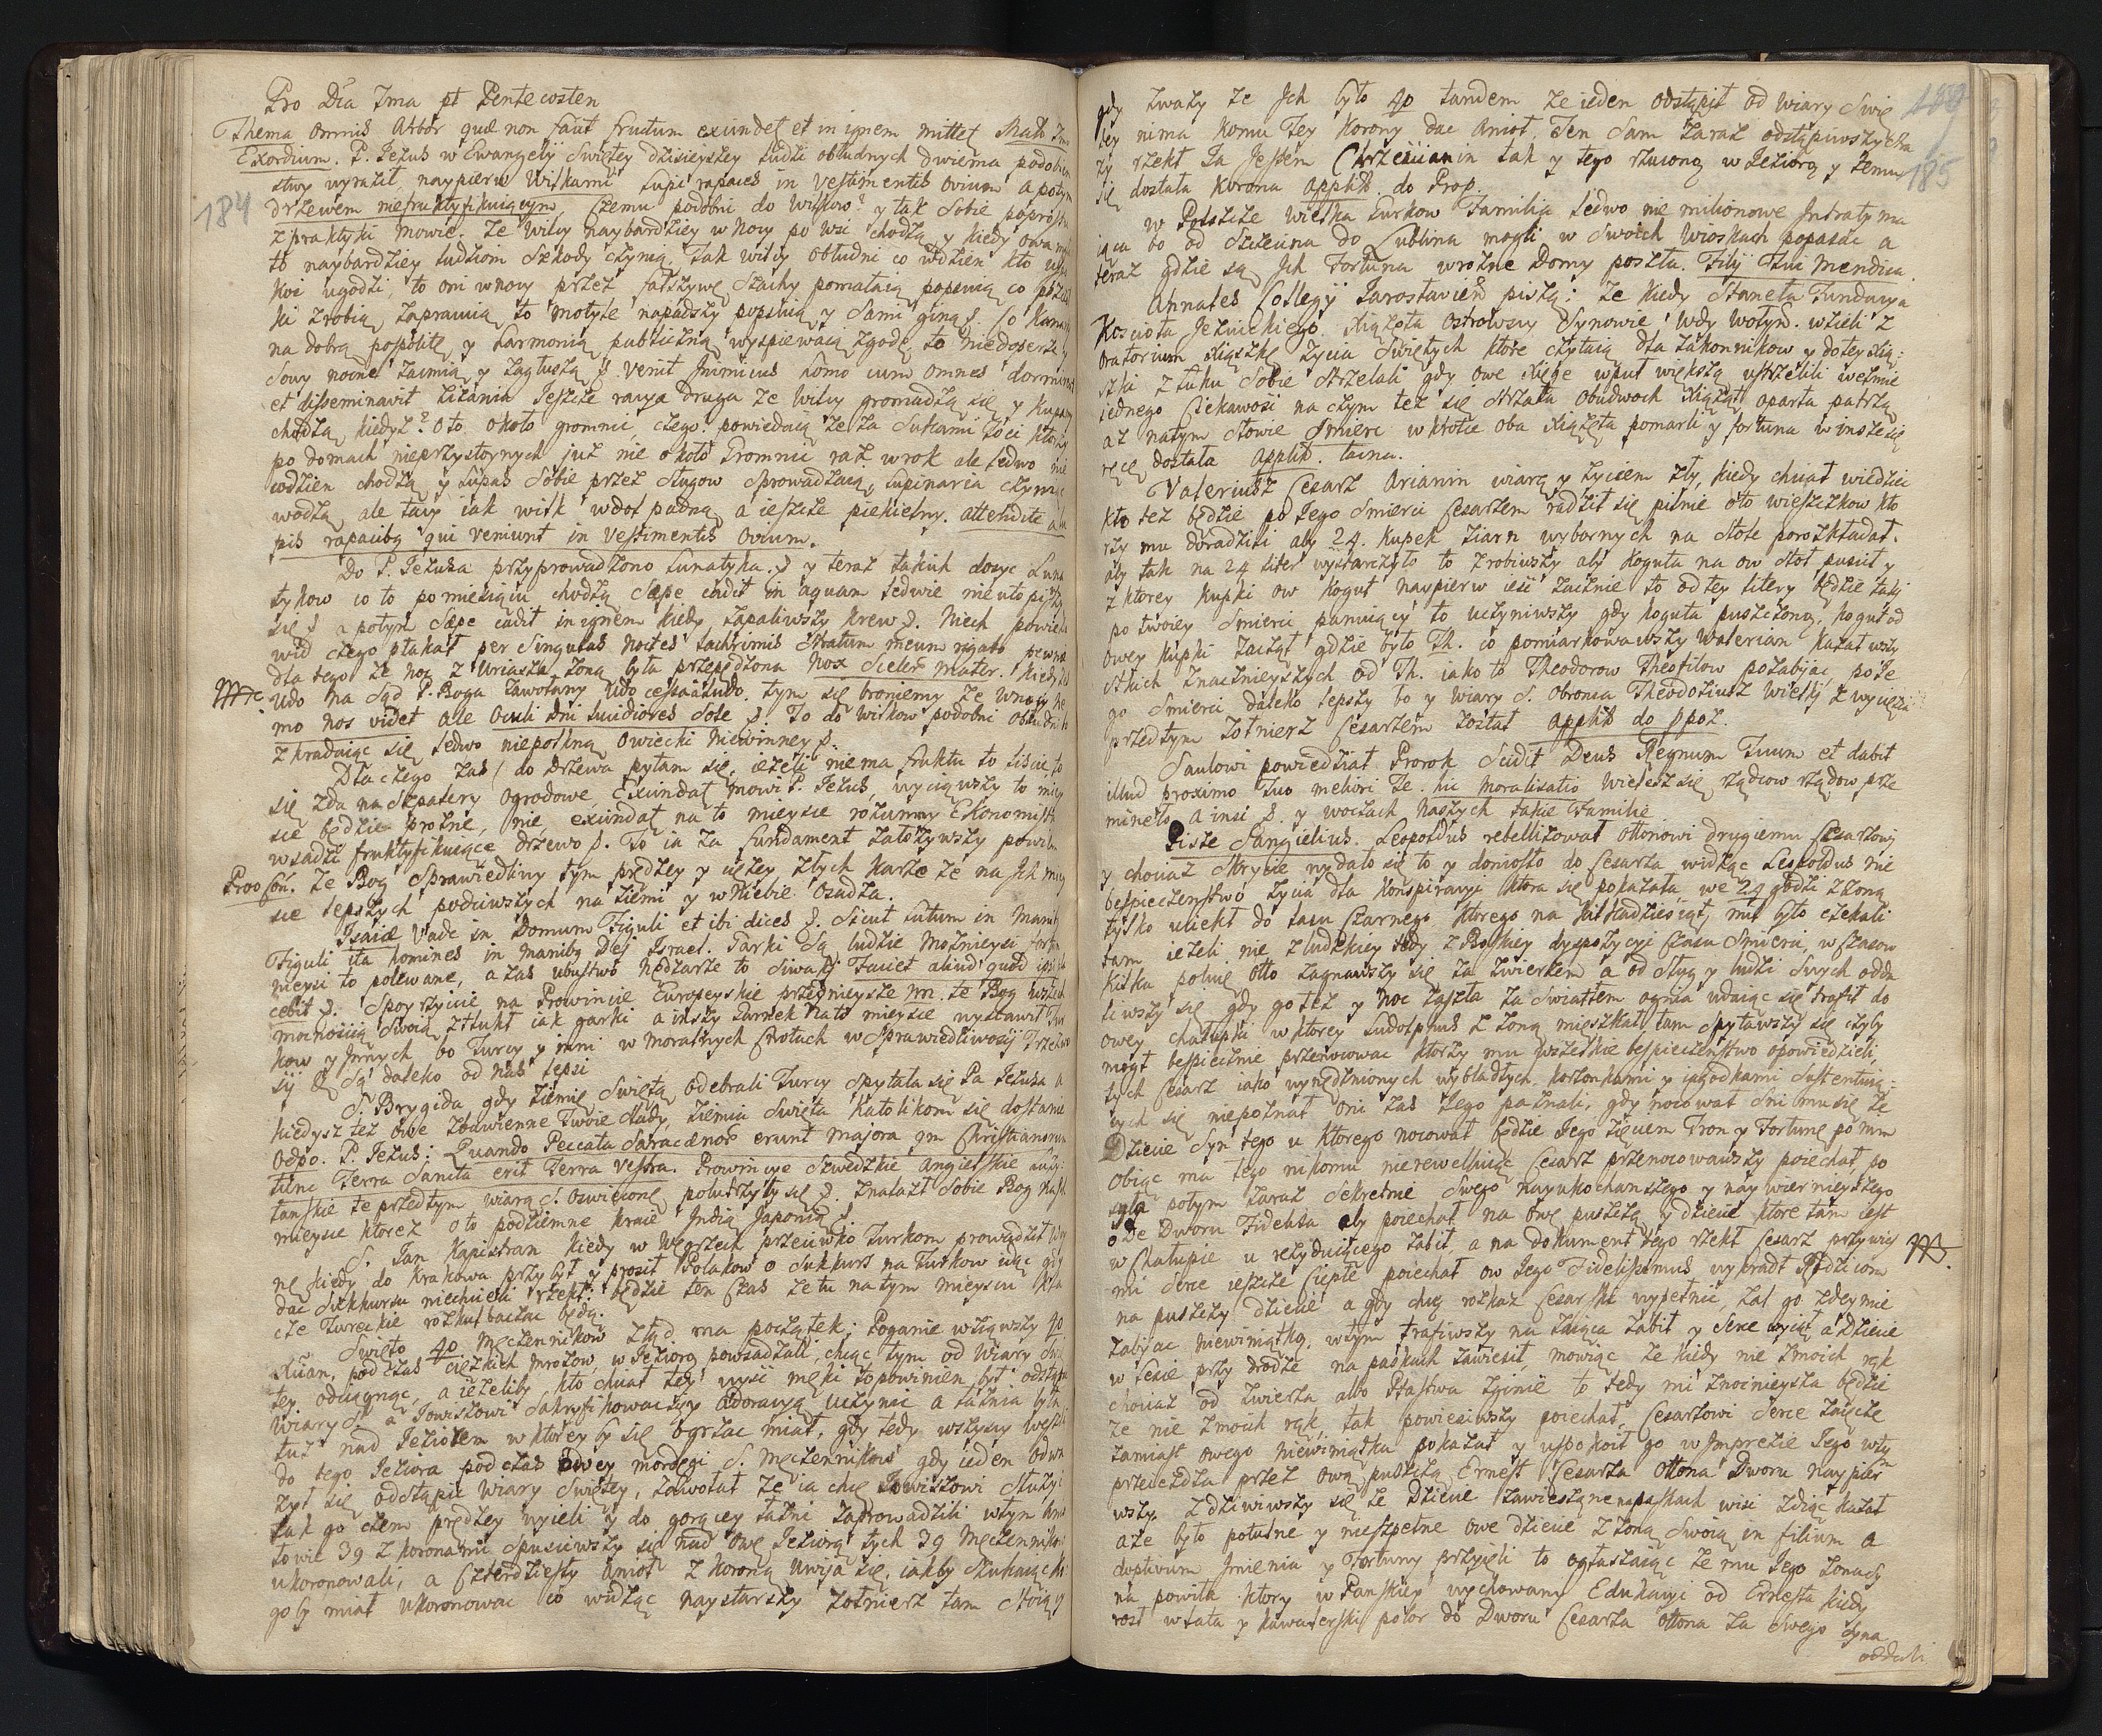 Pro Dia 7ma pt Pentecosten
Thema omnis Arbor quæ non facit fructum excindet et in ignem mittet Math 7mo
Exordium. P. Jezus w Ewangelÿ Swiętey dzisieyszey ludzi obłudnych dwiema podobien
stwy wyraził naypierw Wilkami Lupi rapaces in vestimentis Ovium a potym
184
drzewem niefruktyfikuiącym, Czemu podobni do Wilkow? y tak sobie poprostu
z praktyki mowię. Ze Wilcy naybardziey w Nocy po wsi chodzą y kiedy
to naybardziey ludziom Szkody czynią. Tak wilcy obłudni co wdzien kto
Koi ugodzi, to oni wnocy przez fałszywe Sztachy pomataią popsuią co
ki zrobią zaprawią to motyle napadszy popsuią y sami giną §. Co
na dobrą pospolitę y harmonią publiczną wyspiewaią zgodę, to niedoperze
Sowy nocne zacmią y zagłuszą §. Venit Inimicus homo cum omnes dormirent
et disseminavit zizania Jeszcze racya druga ze Wilcy gromadzą się y kupami
chodzą kiedyz? Oto około gromnic czego? powiedaią ze za Sukami toc i ktorzy
po domach nieprzystoynych juz nie około Gromnic raz w rok ale ledwo nie
codzien chodzą y Lupas sobie przez sługow sprowadzaią, lupinaria czynią
wodzą ale tacy iak wilk wdoł padną a ieszcze piekielny. attendite a lu
pis rapacibg qui veniunt in vestimentis Ovium.
Do P. Jezusa przyprowadzono Lunatyka. § y teraz takich dosyc Luna
tykow co to po miesiącu chodzą Sæpe cadit in aquam ledwie nieutopi
się § a potym Sæpe cadit in ignem kiedy zapaliwszy krew §. Niech powie
wid czego płakał per singulas noctes lachrimis Stratum meum rigabo pewno
dla tego ze noc z Uriasza zoną była przepędzona Nox Sceler mater. Kiedy
udo na Sąd P. Boga zawołany udo tym się broniemy ze wnocy Ne
mo nos videt ale Oculi Dni lucidiores Sole §. To do wilkow podobni obłudnicy
zkradaiąc się ledwo niepołkną Owiecki Niewinney §.
Dla czego zas / do Drzewa pytam się, iezeli niema fruktu to liscie, to
się zda na Szpalery Ogrodowe, Exindat mowi P. Jezus, wyciąwszy to miey
sce będzie prozne, nie, exindat na to mieysce rozumny Ekonomista
wsadzi fruktyfikuiące drzewo §. To ia za fundament załozywszy powiem
Proo soń. Ze Bog Sprawiedliwy tym prędzey y cięzey złych karze ze na Jch miey
sce lepszych podciwszych na ziemi y w Niebie Osadza.
Isaiæ Vade in Domum Figuli et ibi dices §. Sicut lutum in Manu
Figuli ita homines in manibg Dei Israel. Garki Są ludzie Moznieysi
nieysi to polewane, a zas ubustwo Nędzarze to Siwaki Faciet aliud quod
cebit §. Spoyrzycie na Prowincie Europeyskie przednieysze nn, te Bog wszech
mocnoscią swoią ztłukł iak garki a inszy Garnek nato mieysce wystawił Tur
kow y innych bo Turcy y inni w moralnych cnotach w Sprawiedliwosci
§ Są daleko od nas lepsi
S. Brygida gdy Ziemię Swiętą odebrali Turcy Spytała się Pa Jezusa a
kiedysz tez owe zbawienne Twoie slady, Ziemia Swięta Katolikom się dostanie
Odpo. P. Jezus: Quando Peccata Saracenor erunt majora qm Christianorum
tunc Terra Sancta erit Terra Vestra. Prowincye Szwedzkie Angielskie
tanskie te przedtym wiarą S. Oswiecone poluterzyły się §. znalazł Sobie Bog nasz
mieysce ktorez oto podziemne kraie Indią Japonią §
S. Jan Kapistran kiedy w Węgrzech przeciwko Turkom prowadził
nę kiedy do Krakowa przybył y prosił Polakow o Sukkurs na Turkow idąc gdy
dac Sukkursu niechcieli rzekł: będzie ten czas ze tu na tym mieyscu
cze Tureckie będą.
Swięto 40 Męczennikow ztąd ma początek: Poganie wziąwszy 40
Xtian, podczas cięszkich Mrozow, w Jezioro powsadzali, chcąc tym od Wiary Swię
tey odciągnąc, a iezeliby kto chciał tey uysc męki topowinien był odstąpic
Wiary S. a Jowiszowi Sakryfikowawszy adoracyą uczynic a łaznia była
tuz nad Jeziorem w ktorey by się ogrzac miał, gdy tedy wszyscy weszli
do tego Jeziora podczas owey mordęgi S. Męczennikow gdy ieden odwa
zył się odstąpic Wiary Swiętey, zawołał ze ia chcę Jowiszowi Słuzyc
tak go czem prędzey wyieli y do gorącey łazni zaprowadzili wtym Ani
łowie 39 z koronami Spusciwszy się nad Owe Jezioro tych 39 Męczennikow
ukoronowali, a Czterdziesty Anioł z koroną Uwija się, iakby Szukaiąc ko
goby miał ukoronowac co widząc naystarszy Zołnierz tam stoiący
gdy zwazy ze Jch było 40 tandem ze ieden odstąpił od Wiary Swię 188
tey nima komu Tey Korony dac Anioł, Ten sam zaraz odstąpiwszych
zy rzekł Ja Jestem Chrzescianin tak y tego rzucono w Jezioro y temu 185
się dostała Korona applik. do Prop.
W Polszcze wielka Turkow Familia ledwo nie milionowe Intratyma
iąca bo od Szczecina do Lublina mogli w swoich Wioskach popasac a
teraz gdzie są Jch Fortuna wrozne Domy poszła. Filÿ Tui Mendica.
Annales Collegÿ Jaroslavien piszą: ze kiedy Staneła Fundacya
Koscioła Jezuickiego. Xiązęta Ostrowscy Synowie Wdy Wołyn. wzieli z
Oratorium Xiąszkę zycia Swiętych ktore czytaią dla Zakonnikow y doteyXią:
szki z łuku Sobie strzelali gdy owe Xięge wput większą ustrzelili weźmie
iednego Ciekawosc na czym tez się strzała obudwoch Xiąząt oparła patrzą
az natym słowie Smierc wkrotce oba Xiązęta pomarli y fortuna winsze się
ręce dostała applik. tacna.
Valeriusz Cesarz Arianin wiarą y zyciem zły, kiedy chciał wiedziec
kto tez będzie po Jego Smierci Cesarzem radził się pilnie oto wieszczkow kto
rzy mu doradzili aby 24. kupek ziarn wybornych na stole porozkładał.
aby tak na 24 liter wystarczyło to zrobiwszy aby Koguta na ow stoł puscił y
z ktorey kupki ow kogut naypierw iesc zacznie to od tey litery będzie taki
po twoiey Smierci panuiący to uczyniwszy gdy koguta puszczono, kogut od
owey kupki zaczął gdzie było Th. co pomiarkowawszy Walerian kazał wszy
stkich znacznieyszych od Th. iako to Theodorow Theofilow pozabijac po Je
go Smierci daleko lepszy to y Wiary S. obronca Theodoziusz Wielki Zwycięzca
przedtym Zołnierz Cesarzem został applik do Ppoz.
Saulowi powiedział Prorok Scidit Deus Regnum Tuum et dabit
illud proximo Tuo meliori Te. hic Moralisatio Wielesz się rządcow rządow prze
mineło a insi §. y woczach naszych takie Familie
Pisze Sangielius. Leopoldus rebellizował Ottonowi drugiemu Cesarzowi
y chociaz skrycie wydało się to y doniosło do Cesarza widząc Leopoldus nie
bespieczenstwo zycia dla konspiracyi ktora się pokazała we 24 godzi z Zoną
tylko uciekł do lasu Czarnego ktorego na kilkadziesiąt mil było czekali
tam iezeli nie z ludzkiey tedy z Boskiey dyspozycyi czasu Smierci, w Czasow
kilka poluię Otto zagnawszy się za zwierzem a od sług y ludzi Swych odda
liwszy się gdy go tez y Noc zaszła za Swiatłem ognia udaiąc się trafił do
owey chałupki w ktorey Ludolphus z Zoną mieszkał, tam spytawszy się czyby
mogł bespiecznie przenocowac ktorzy mu wszelkie bespieczenstwo opowiedzieli,
tych Cesarz iako wynędznionych wybladłych korzonkami y iagodkami Sustentuią:
cych się niepoznał oni zas Jego poznali, gdy nocował sni musię ze
Dziecie syn tego u ktorego nocował będzie Jego zięciem Tron y Fortunę po nim
obiąc ma tego nikomu nierewelluiąc Cesarz przenocowawszy poiechał, po
syła potym zaraz Sekretnie Swego nayukochanszego y naywiernieyszego
De Dworu Fidelisa aby poiechał na Owę puszczą y dziecie ktore tam iest
w Chałupie u rezyduiącego zabił, a na dokument tego rzekł Cesarz przywiez
mi Serce ieszcze ciepłe poiechał ow Jego Fidelissimus wykradł Rodzicom
na puszczy dziecie a gdy chcę roskaz Cesarski wypełnic, zal go zdeymie
zabijac Niewiniątko, wtym trafiwszy na Zaiąca zabił y Serce wyciął a Dziecie
w lesie przy drodze na paskach zawiesił, mowiąc ze kiedy nie zmoich rąk
chociaz od zwierza albo Ptastwa zginie to tedy mi znocnieysza będzie
ze nie zmoich rąk, tak powiesiwszy poiechał, Cesarzowi Serce zaięcze
zamiast owego Niewiniątka pokazał y uspokoił go w Imprezie Jego wty
przeiezdza przez ową puszczą Ernest Cesarza Ottona Dworu Naypier
wszy. Zdziwiwszy się ze Dziecie zawieszone napaskach wisi zdiąc kazał
aze było polutne y nieszpetne owe dziecie z zoną swoią in filium a
doptivum Imienia y Fortuny przyieli to ogłaszaiąc ze mu Jego Zonasy
na powiła ktory w Panskiey wychowany Edukacyi od Ernesta kiedy
rosł w lata y kawalerski polor do Dworu Cesarza Ottona za Swego syna
oddali